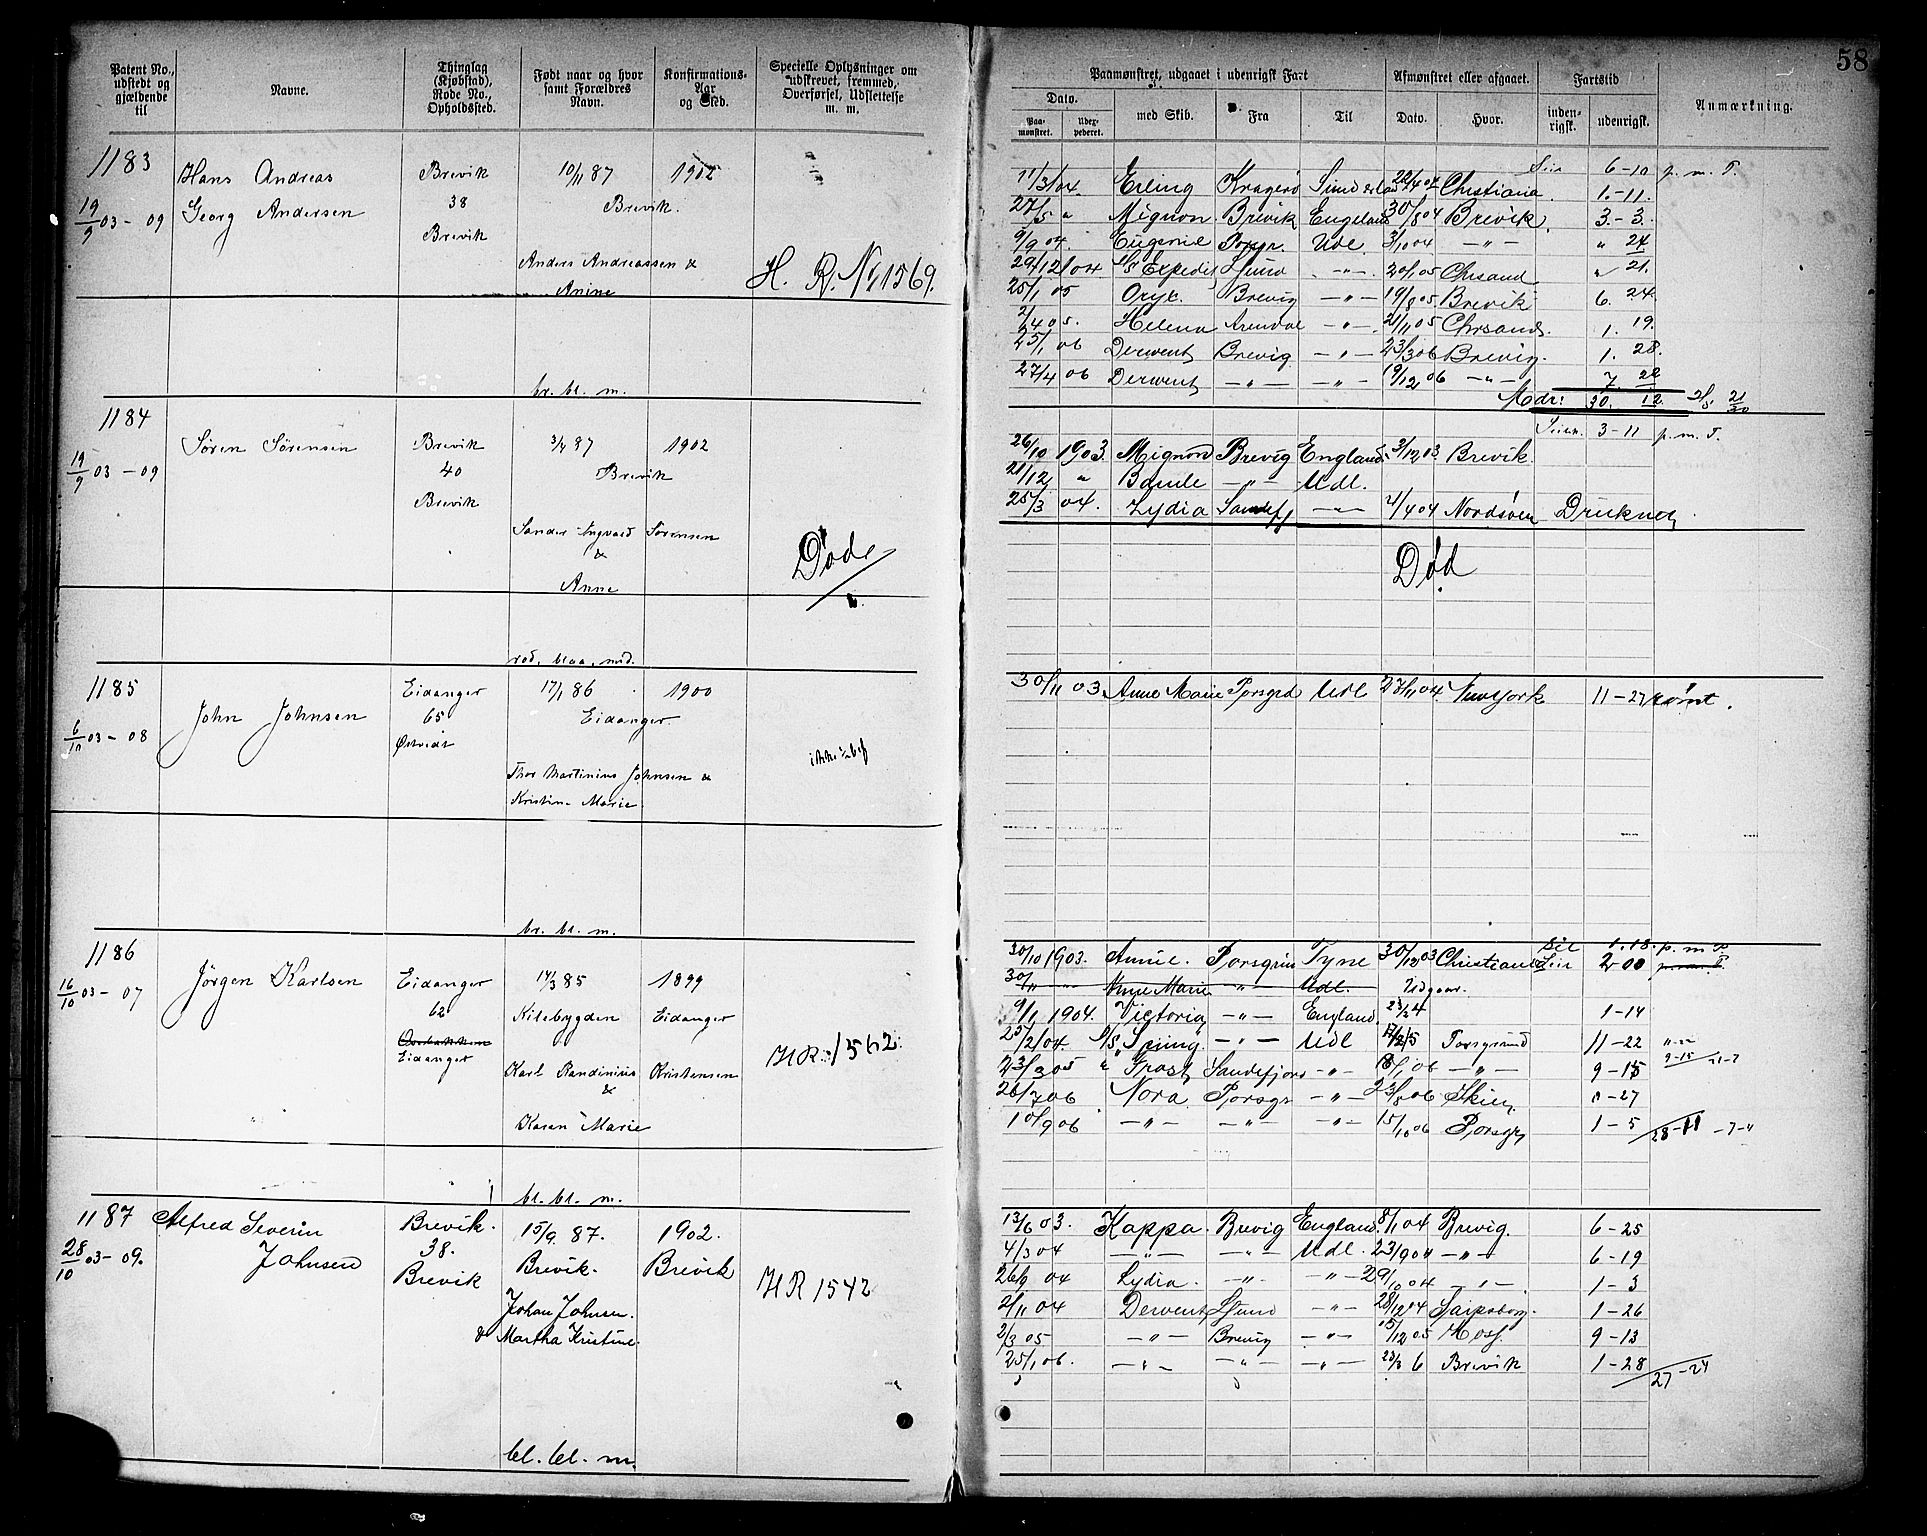 58
Patent No., udstedt og gjældende til
Navne.
Thinglag (Kjøbstad), Rode No., Opholdssted.
Født naar og hvor samt Forældres Navn.
Konfirmations-Aar og Sted.
Specielle Oplysninger om udskrevet, fremmed, Overførsel, Udslettelse m. m.
Paamønstret, udgaaet i udenrigsk Fart
Afmønstret eller afgaaet.
Fartstid
Anmærkning.
Dato.
Paa-mønstret.
Udex-pederet.
med Skib.
Fra
Til
Dato.
Hvor.
inden-rigsk.
udenrigsk.
1183
Hans Andreas
Brevik
10/11 87
1902
19/9 03 - 09
Georg Andersen
38
Brevik.
Brevik
Anders Andreassen &
Anine
H. R. No 1569.
br. bl. m.
6-10 p. m. T.
11/3 04 Erling Kragerø 22/4 04 Christiania 1.-11.
27/5 " Mignon Brevik England 30/8 04 Brevik. 3.-3.
9/9 04. Eugenie Porsgr. Udl 3/10 04 -"- " 24
29/12 04 S/S Expedit -"- 20/1 05 Chrsand " 21.
25/1 05 Oryx. Brevig -"- 19/8 05 Brevik 6. 24.
Helena Arendal -"- 21/11 05 Chrsands. 1. 19.
25/1 06 Derwent Brevig -"- 23/3 06 Brevig. 1. 28.
27/4 06 Derwent -"- -"- 19/12 06 -"- 7. 22
Mdr: 30. 12.
1184
Søren Sørensen
Brevik
87
1902
19/9 03 - 09
40
Brevik
Brevik
Sander Ingvald Sørensen
&
Anne
Døde
rød, blaa, md.
3-11 p. m. T.
26/10 1903. Mignon Brevig England 3/12 03 Brevik
21/12 " Bamle -"- Udl.
25/3 04. Lydia Sandefj -"- 4/4 04 Nordsøen Druknet
Død
1185
John Johnsen
Eidanger
17/1 86
1900
6/10 03 - 08
65
Eidanger.
Thor Martinius Johnsen &
Kristine Marie
br. bl. m.
30/11 03 Anne Marie Porsgrd Udl 27/11 04. New York 11-27 rømt.
1186
Jörgen Karlsen
Eidanger
14/3 85
1899
16/10 03 - 07
62
Kilebygden
Eidanger
Eidanger
Karl Randinius Kristensen
&
Karen Marie
HR: 1562
bl. bl. m.
1.18. p. m. T
30/10 1903. Annie. Porsgrund Tyne 30/12 03 Christiansd 2-00
30/11 " Anne Marie -"- Udl. Udgaar.
9/1 1904. Victoria -"- England 1-14
25/2 04. S/S -"- Udl 17/2 5 Porsgrund 11-22
23/3 05 " Frost Sandefjord -"- 18/1 06 -"- 9-15
26/7 06 Nora Porsgr -"- 23/8 06 Skien 0-27
10/9 06 -"- -"- -"- 15/10 06 Porsgr 1-5 28-11
1187
Alfred Severin
Brevik.
15/9. 87.
1902.
28/10 03 - 09.
Johnsen
38.
Brevik.
Brevik
Brevik
Johan Johnsen.
& Martha Kristine.
HR 1542
bl. bl. m.
13/6 03. Kappa. Brevig England 8/1 04 Brevig. 6-25
4/3 04 -"- -"- Udl. 23/9 04 -"- 6-19
26/9 04 Lydia. -"- -"- 29/10 04 -"- 1-3
2/11 04 Derwent -"- 28/12 04 Sarpsborg. 1-26
2/3 05 -"- Brevig -"- 15/12 05 Moss. 9-13
25/1 06. -"- -"- -"- 23/3 6 Brevik 1-28 27-24